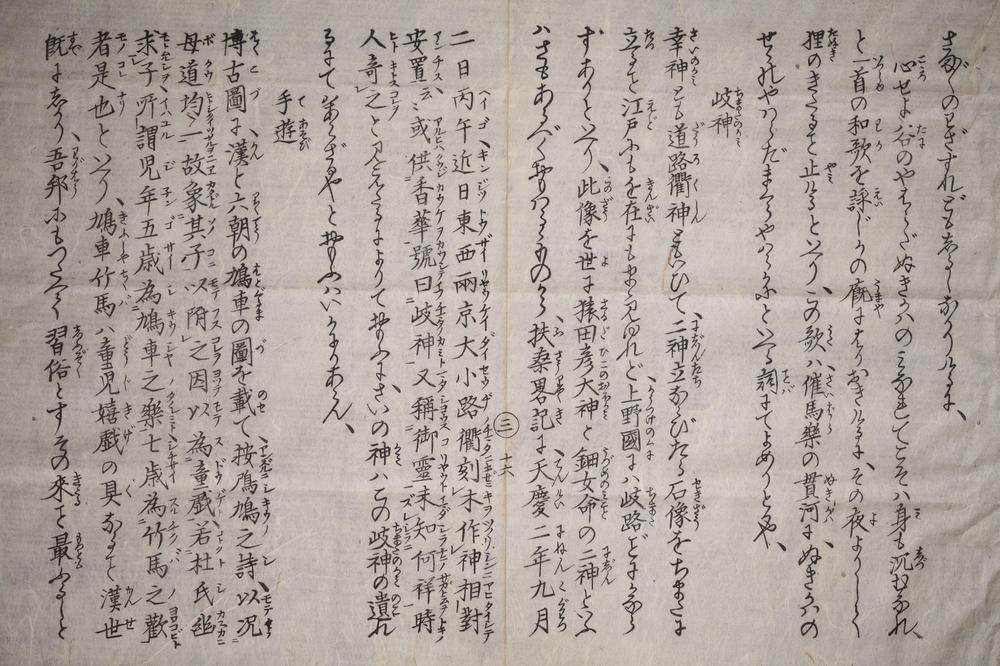 さま〲のわざすれどもしるしなかりけるに、
心せよ谷のやはらだぬきがはのみなれてこそハ身も沉むなれ、
と一首の和歌を詠じかの厩にはりおきけるに、その夜よりしてしか
狸のきたること止けるといへりこの歌ハ催馬樂の貫河にぬきがハの
せゞのやハらだまくらやハらかにといへる詞にてよめりとぞや、
岐神
幸神とも道路衢神ともいひて、二神立ならびたる石像をちまたに
立ること江戸にもを在にもまゝ見ゆれど上野國にハ岐路ごとになら
ずありといへり、此像を世に猿田彦大神と鈿女命の二神といふ
ハさもあるべくおもハるゝものから扶桑畧記に天慶二年九月
二日丙午近日東西兩京大小路衢刻木作神相對
安置云〻或供香華號曰岐神又稱御靈未知何祥時
人奇之と見えたるによりておもふにさいの神ハこの岐神の遺れ
るにてあらざるやとおもふハいかにあらん、
手遊
博古圖に、漢と六朝の鳩車の圖を載て按鳲鳩之詩以况
母道均一故象其子以附之因以為童戲若杜氏幽
求子所謂児年五歳為鳩車之樂七歳為竹馬之歡
者是也といへり、鳩車竹馬ハ童児嬉戲の具なること漢世
既にしかり、吾邦にもつたへて習俗とすその來こと最ふるし
三
十六